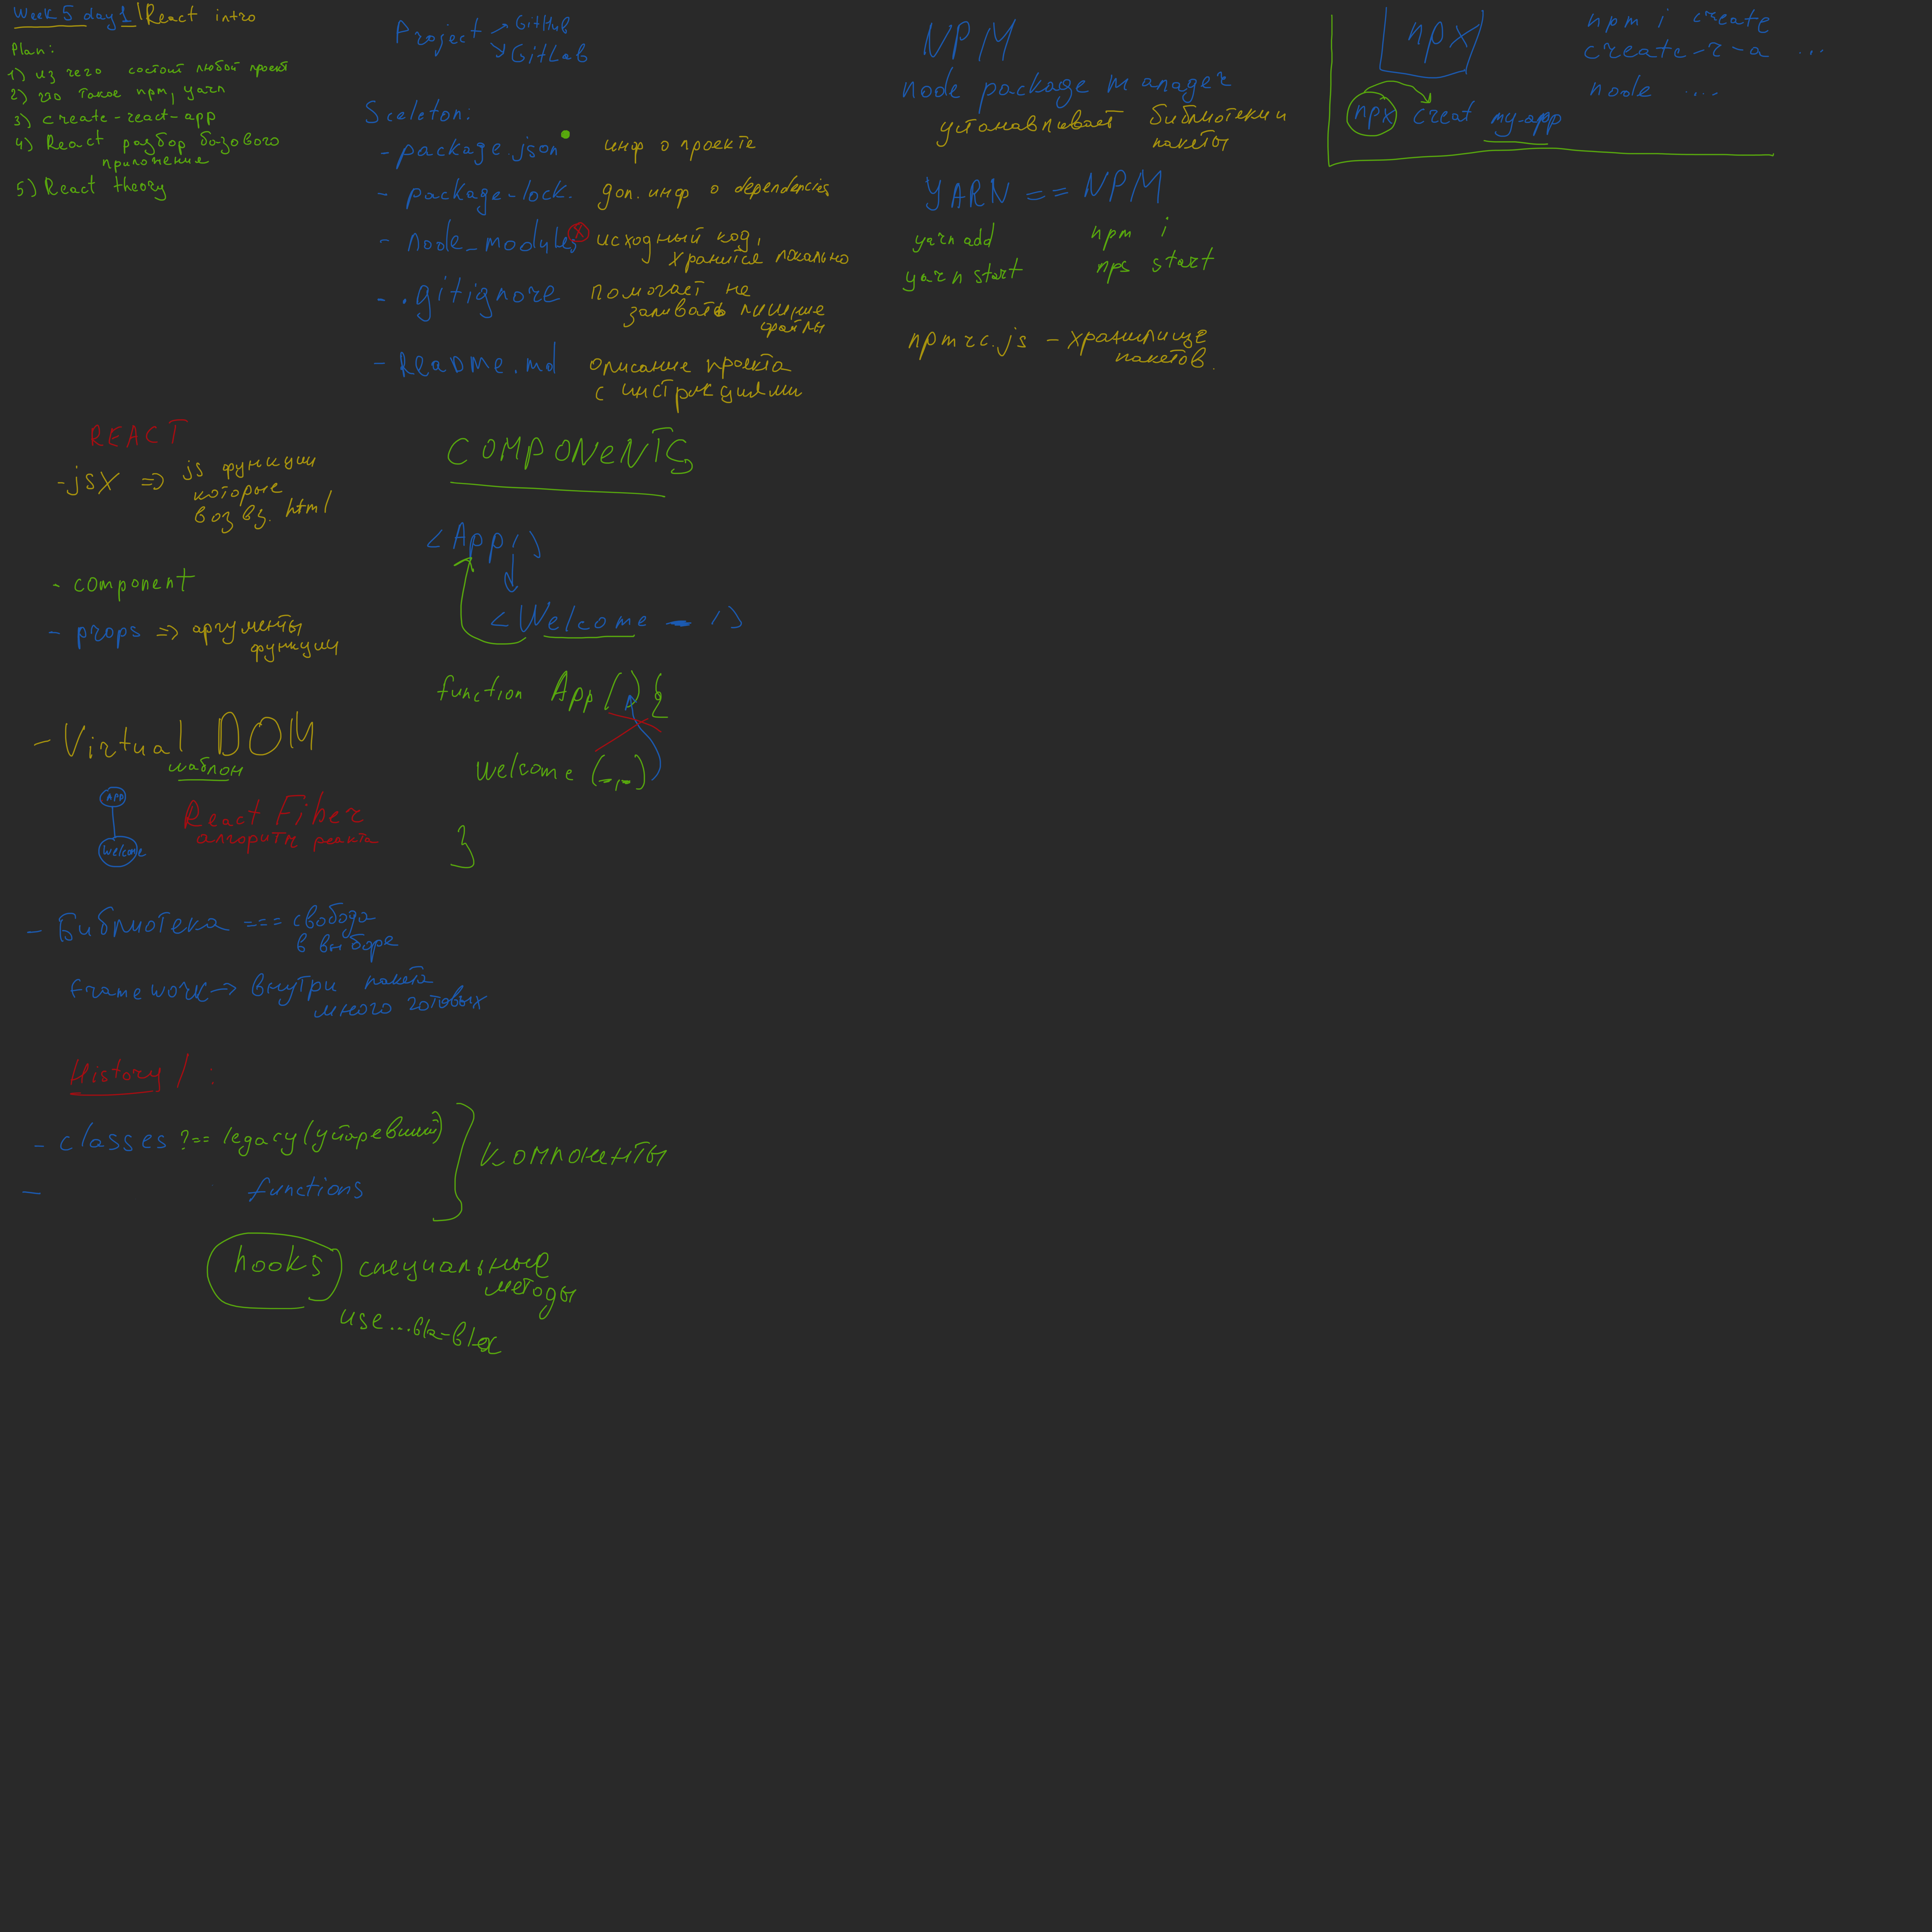 Week 5 day 1 | React intro
Plan:
1) из чего состоит любой проект
2) что такое npm, yarn
3) create-react-app
4) React разбор базового
приложение
5) React theory
Project → GitHub
→ GitLab
Sceleton:
- package.json инф о проекте
- package-lock. доп. инф о dependencies
- node_modules исходный код,
хранится локально
- .gitignore помогает не
заливать лишние
файлы
- ReaDMe.md описание проекта
с инструкциями
NPM
node package manager
устанавливает библиотеки и
пакеты
YARN == NPM
yarn add npm i
yarn start nps start
npmrc.js - хранилище
пакетов.
npx
npx creat my-app
npm i create
create-r-a ...
node ....
REACT
- jsx => js функции
которые
возвз. html
- component
- props => аргументы
функции
- Virtual DOM
шаблон
APP
Welcome
React Fiber
алгоритм реакта
- Библиотека === свобода
в выборе
framework -> внутри пакета
много готовых
History / :
- classes ?== legacy (устаревший)
- functions
компоненты
hooks специальные
методы
use...bla-bla
COMPONeNTS
<App />
<Welcome - />
function App() {
Welcome (-,-)
}